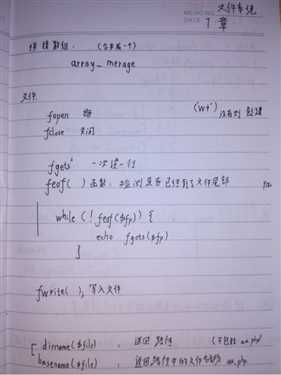 文件系统
MEMO NO.
DATE 7 章
拼接数组: (合并成一个)
array_merage
文件
fopen (w+) 没有则 创建
fclose 关闭
fgets 一次读一行
feof( ) 函数: 检测是否已经到了文件尾部
while (! feof($fp)) {
echo fgets($fp)
}
fwrite( ); 写入文件
dirname($file) 返回 路径 (不包括 aa.php)
basename($file) 返回路径中的文件 aa.php